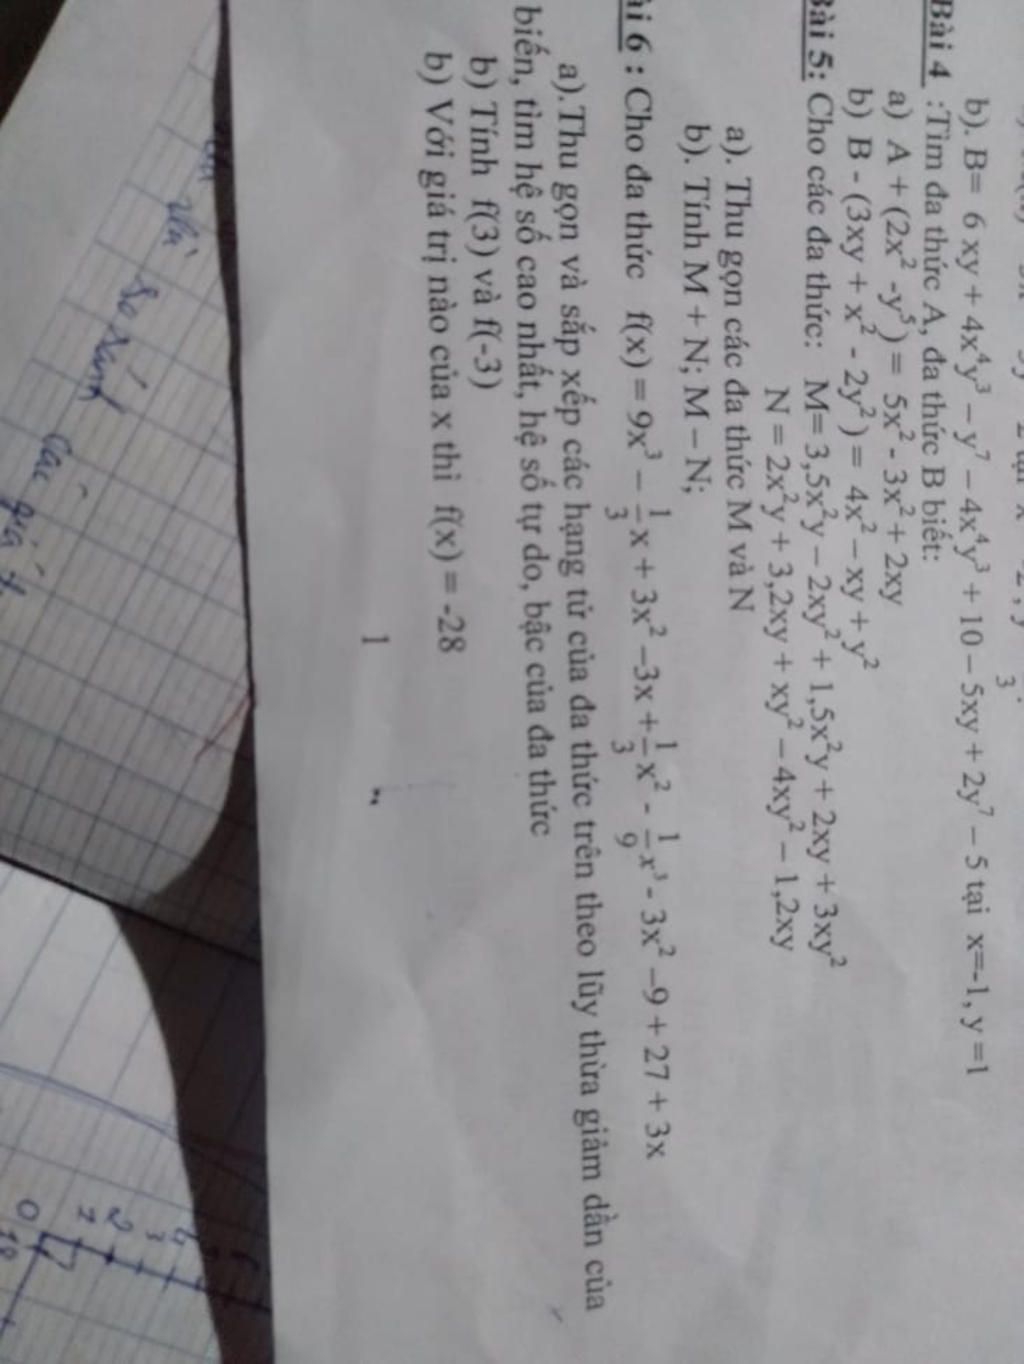 b). B= 6 xy + 4x⁴y³ – y⁷ – 4x⁴y³ + 10 – 5xy + 2y⁷ – 5 tại x=-1, y =1
Bài 4 :Tìm đa thức A, đa thức B biết:
a) A + (2x² -y⁵) = 5x² - 3x² + 2xy
b) B - (3xy + x² - 2y²) = 4x² – xy + y²
Bài 5: Cho các đa thức: M= 3,5x²y – 2xy² + 1,5x²y + 2xy + 3xy²
N = 2x²y + 3,2xy + xy² – 4xy² – 1,2xy
a). Thu gọn các đa thức M và N
b). Tính M + N; M – N;
ài 6 : Cho đa thức f(x) = 9x³ – 1/3 x + 3x² –3x + 1/3 x² - 1/9 x³ - 3x² –9 + 27 + 3x
a).Thu gọn và sắp xếp các hạng tử của đa thức trên theo lũy thừa giảm dần của
biến, tìm hệ số cao nhất, hệ số tự do, bậc của đa thức
b) Tính f(3) và f(-3)
b) Với giá trị nào của x thì f(x) = -28
1
và so sánh các giá
0 1 2 3 4